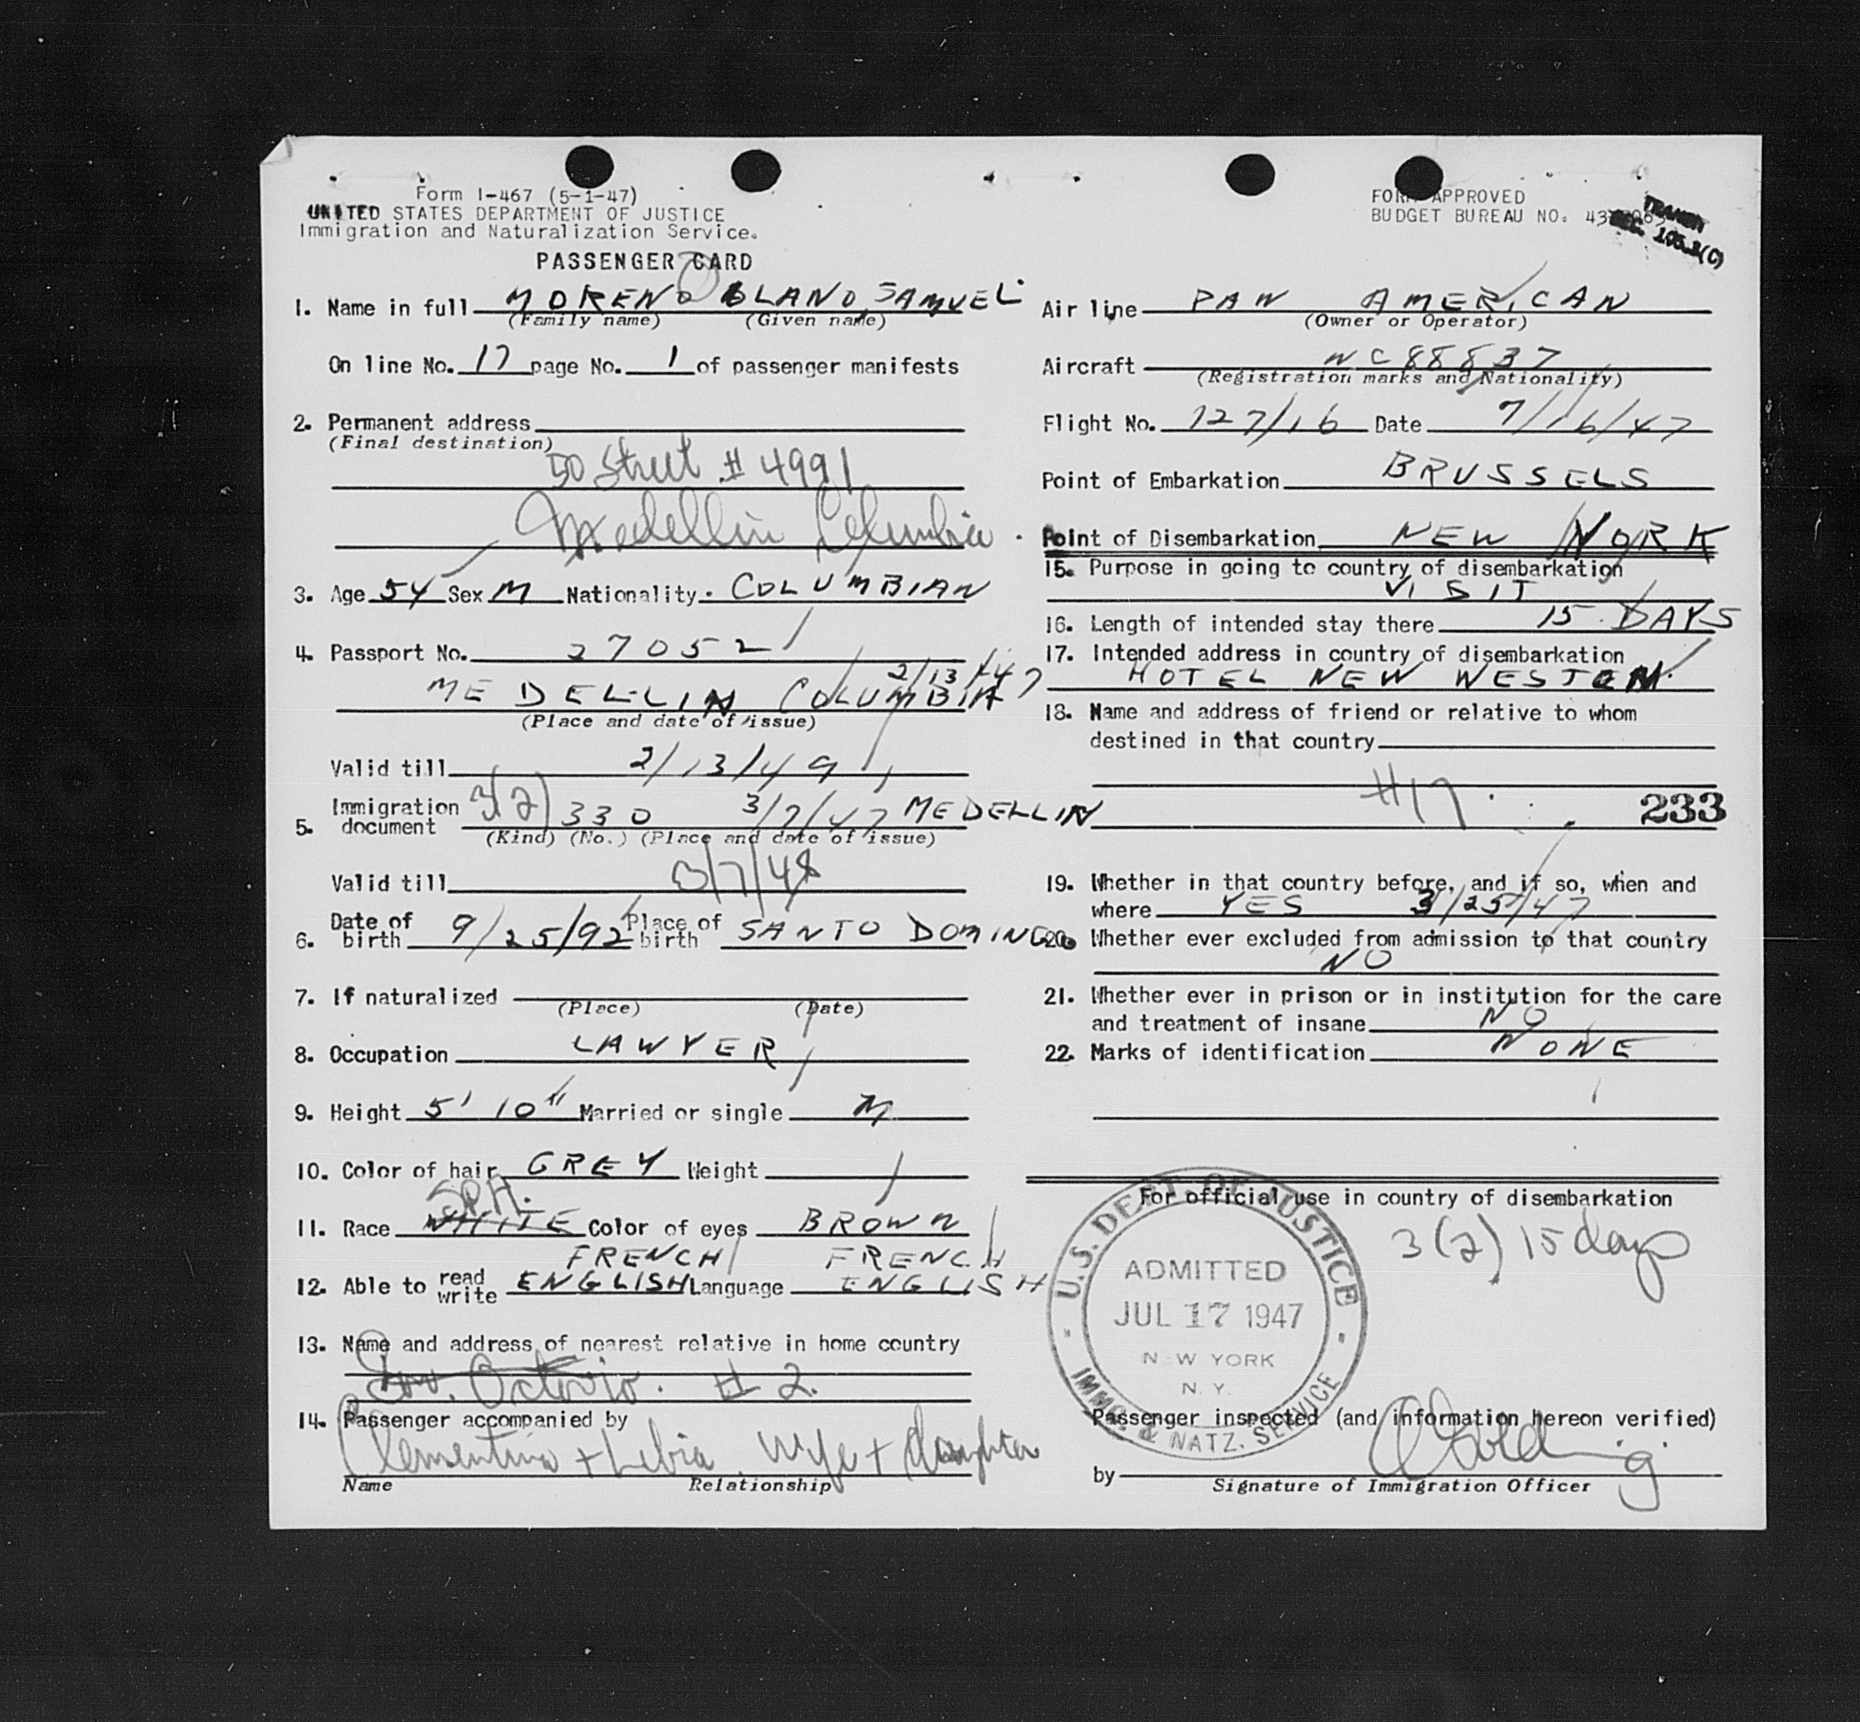 Form I-467 (5-1-47)
UNITED STATES DEPARTMENT OF JUSTICE
Immigration and Naturalization Service.
PASSENGER CARD
FORM APPROVED
BUDGET BUREAU NO. 43
SEC. (C)
1. Name in full MORENO OLANO, SAMUEL
(Family name) (Given name)
On line No. 17 page No. 1 of passenger manifests
2. Permanent address
(Final destination)
50 Street # 4991
Medellin Columbia
3. Age 54 Sex M Nationality. COLUMBIAN
4. Passport No. 27052
2/13/47
MEDELLIN COLUMBIA
(Place and date of issue)
Valid till 2/13/49
5. Immigration document 3(2) 330 3/7/47 MEDELLIN
(Kind) (No.) (Place and date of issue)
Valid till 3/7/48
6. Date of birth 9/25/92 Place of birth SANTO DOMINGO
7. If naturalized
(Place) (Date)
8. Occupation LAWYER
9. Height 5' 10" Married or single M
10. Color of hair GREY Weight
SPA.
11. Race WHITE Color of eyes BROWN
FRENCH FRENCH
12. Able to read write ENGLISH Language ENGLISH
13. Name and address of nearest relative in home country
Octavio. # 2.
14. Passenger accompanied by
Clementina + Lebia Wife + daughter
Name Relationship
Air line PAN AMERICAN
(Owner or Operator)
Aircraft NC 88837
(Registration marks and Nationality)
Flight No. 127/16 Date 7/16/47
Point of Embarkation BRUSSELS
Point of Disembarkation NEW YORK
15. Purpose in going to country of disembarkation
VISIT
16. Length of intended stay there 15 DAYS
17. Intended address in country of disembarkation
HOTEL NEW WESTON
18. Name and address of friend or relative to whom
destined in that country
#17
233
19. Whether in that country before, and if so, when and
where YES 3/25/47
20. Whether ever excluded from admission to that country
NO
21. Whether ever in prison or in institution for the care
and treatment of insane NO
22. Marks of identification NONE
For official use in country of disembarkation
3(2) 15 days
U.S. DEPT. OF JUSTICE
ADMITTED
JUL 17 1947
NEW YORK
N.Y.
IMMG. & NATZ. SERVICE
Passenger inspected (and information hereon verified)
by
Signature of Immigration Officer